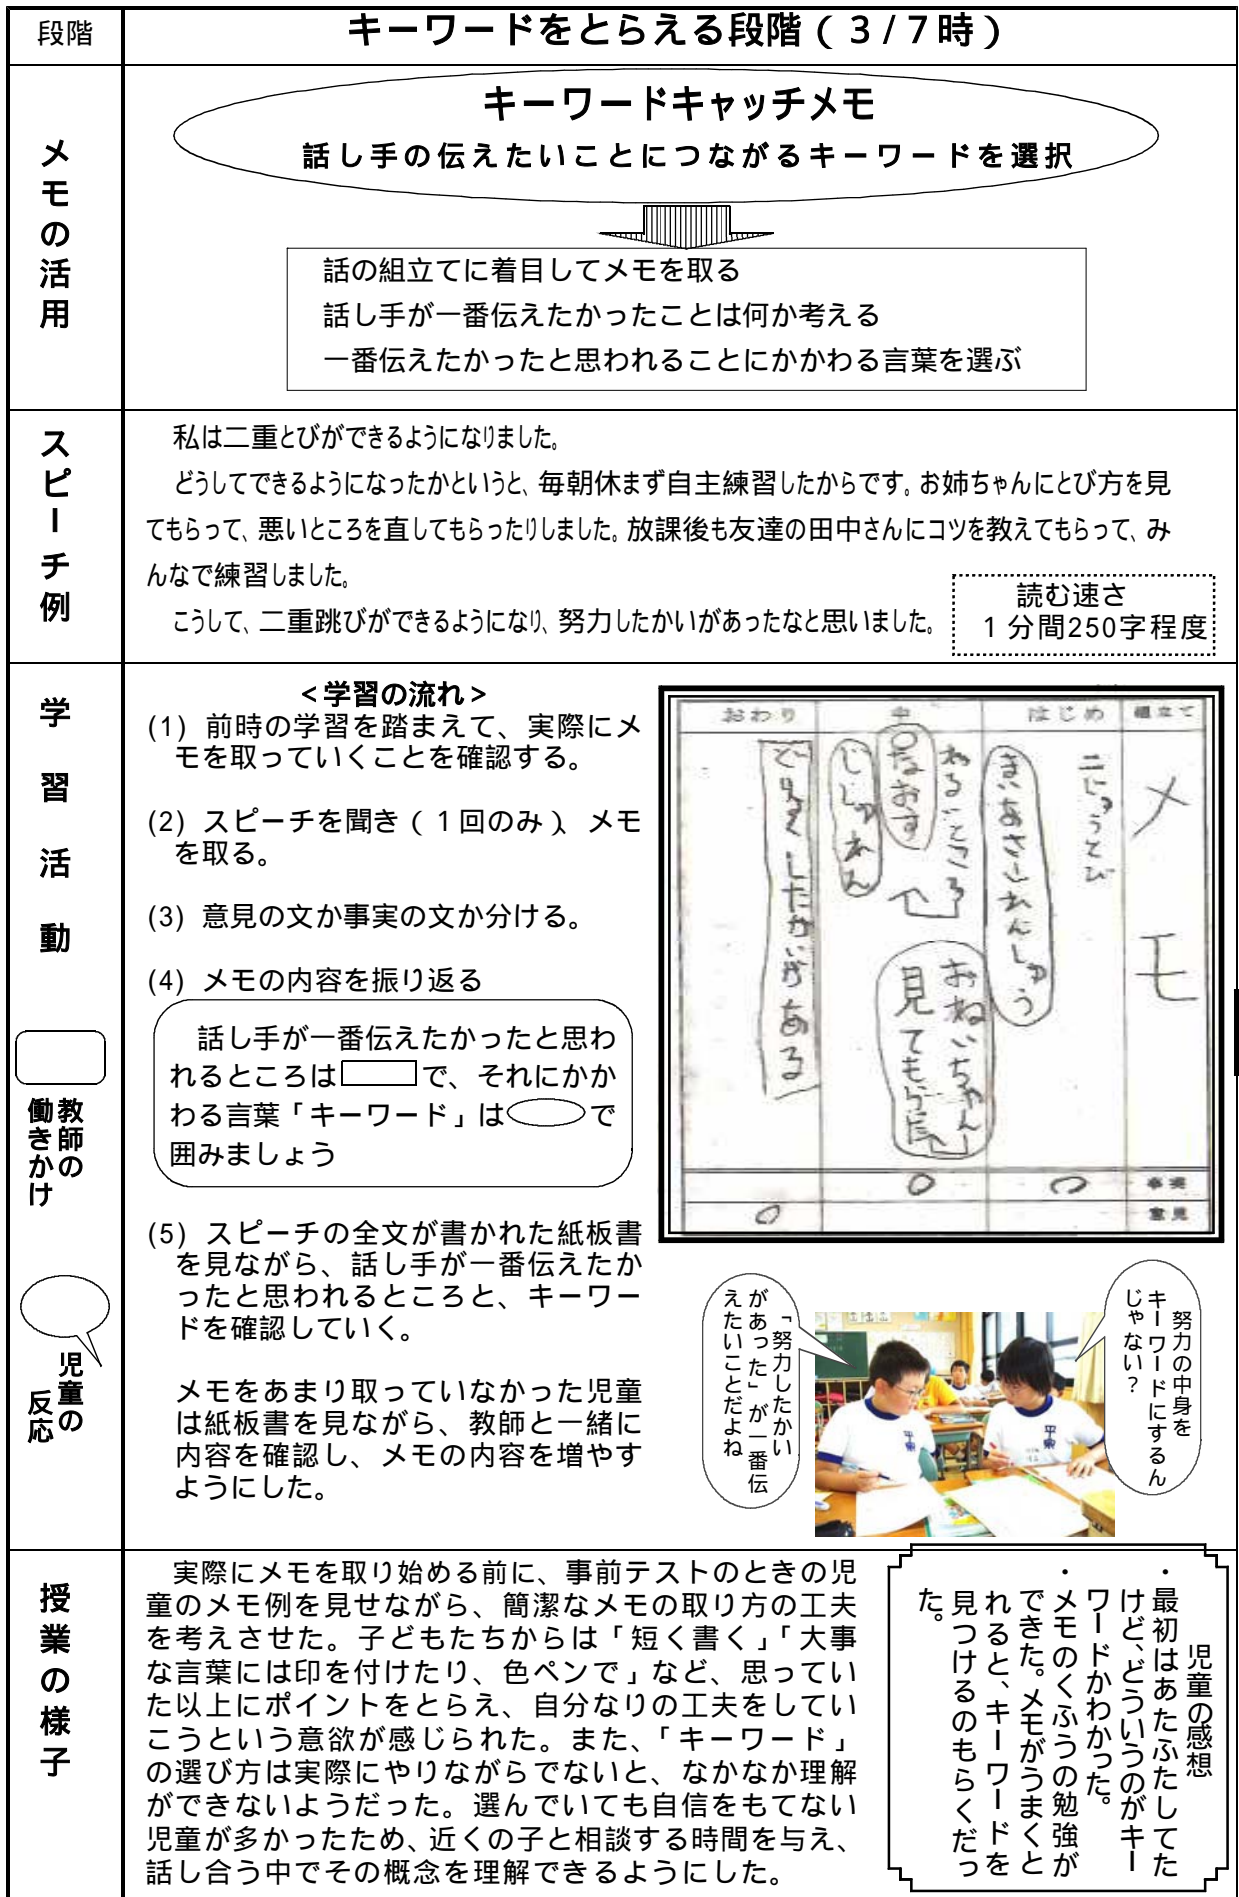 段階
キーワードをとらえる段階（３/７時）
メモの活用
キーワードキャッチメモ
話し手の伝えたいことにつながるキーワードを選択
話の組立てに着目してメモを取る
話し手が一番伝えたかったことは何か考える
一番伝えたかったと思われることにかかわる言葉を選ぶ
スピーチ例
私は二重とびができるようになりました。
どうしてできるようになったかというと、毎朝休まず自主練習したからです。お姉ちゃんにとび方を見
てもらって、悪いところを直してもらったりしました。放課後も友達の田中さんにコツを教えてもらって、み
んなで練習しました。
こうして、二重跳びができるようになり、努力したかいがあったなと思いました。
読む速さ
１分間250字程度
学習活動
教師の
働きかけ
児童の
反応
＜学習の流れ＞
(1) 前時の学習を踏まえて、実際にメ
モを取っていくことを確認する。
(2) スピーチを聞き（１回のみ）、メモ
を取る。
(3) 意見の文か事実の文か分ける。
(4) メモの内容を振り返る
話し手が一番伝えたかったと思わ
れるところは　　で、それにかか
わる言葉「キーワード」は　　で
囲みましょう
(5) スピーチの全文が書かれた紙板書
を見ながら、話し手が一番伝えたか
ったと思われるところと、キーワー
ドを確認していく。
メモをあまり取っていなかった児童
は紙板書を見ながら、教師と一緒に
内容を確認し、メモの内容を増やす
ようにした。
組立て
メモ
事実
意見
はじめ
二じゅうとび
まいあさじれんしゅう
中
おねいちゃん
見てもらった
わるいところ
なおす
じしゅれん
おわり
どりょくしたかいがある
努力の中身を
キーワードにするん
じゃない？
「努力したかい
があった」が一番伝
えたいことだよね
授業の様子
実際にメモを取り始める前に、事前テストのときの児
童のメモ例を見せながら、簡潔なメモの取り方の工夫
を考えさせた。子どもたちからは「短く書く」「大事
な言葉には印を付けたり、色ペンで」など、思ってい
た以上にポイントをとらえ、自分なりの工夫をしてい
こうという意欲が感じられた。また、「キーワード」
の選び方は実際にやりながらでないと、なかなか理解
ができないようだった。選んでいても自信をもてない
児童が多かったため、近くの子と相談する時間を与え、
話し合う中でその概念を理解できるようにした。
児童の感想
・最初はあたふたしてた
けど、どういうのがキー
ワードかわかった。
・メモのくふうの勉強が
できた。メモがうまくと
れると、キーワードを
見つけるのもらくだっ
た。